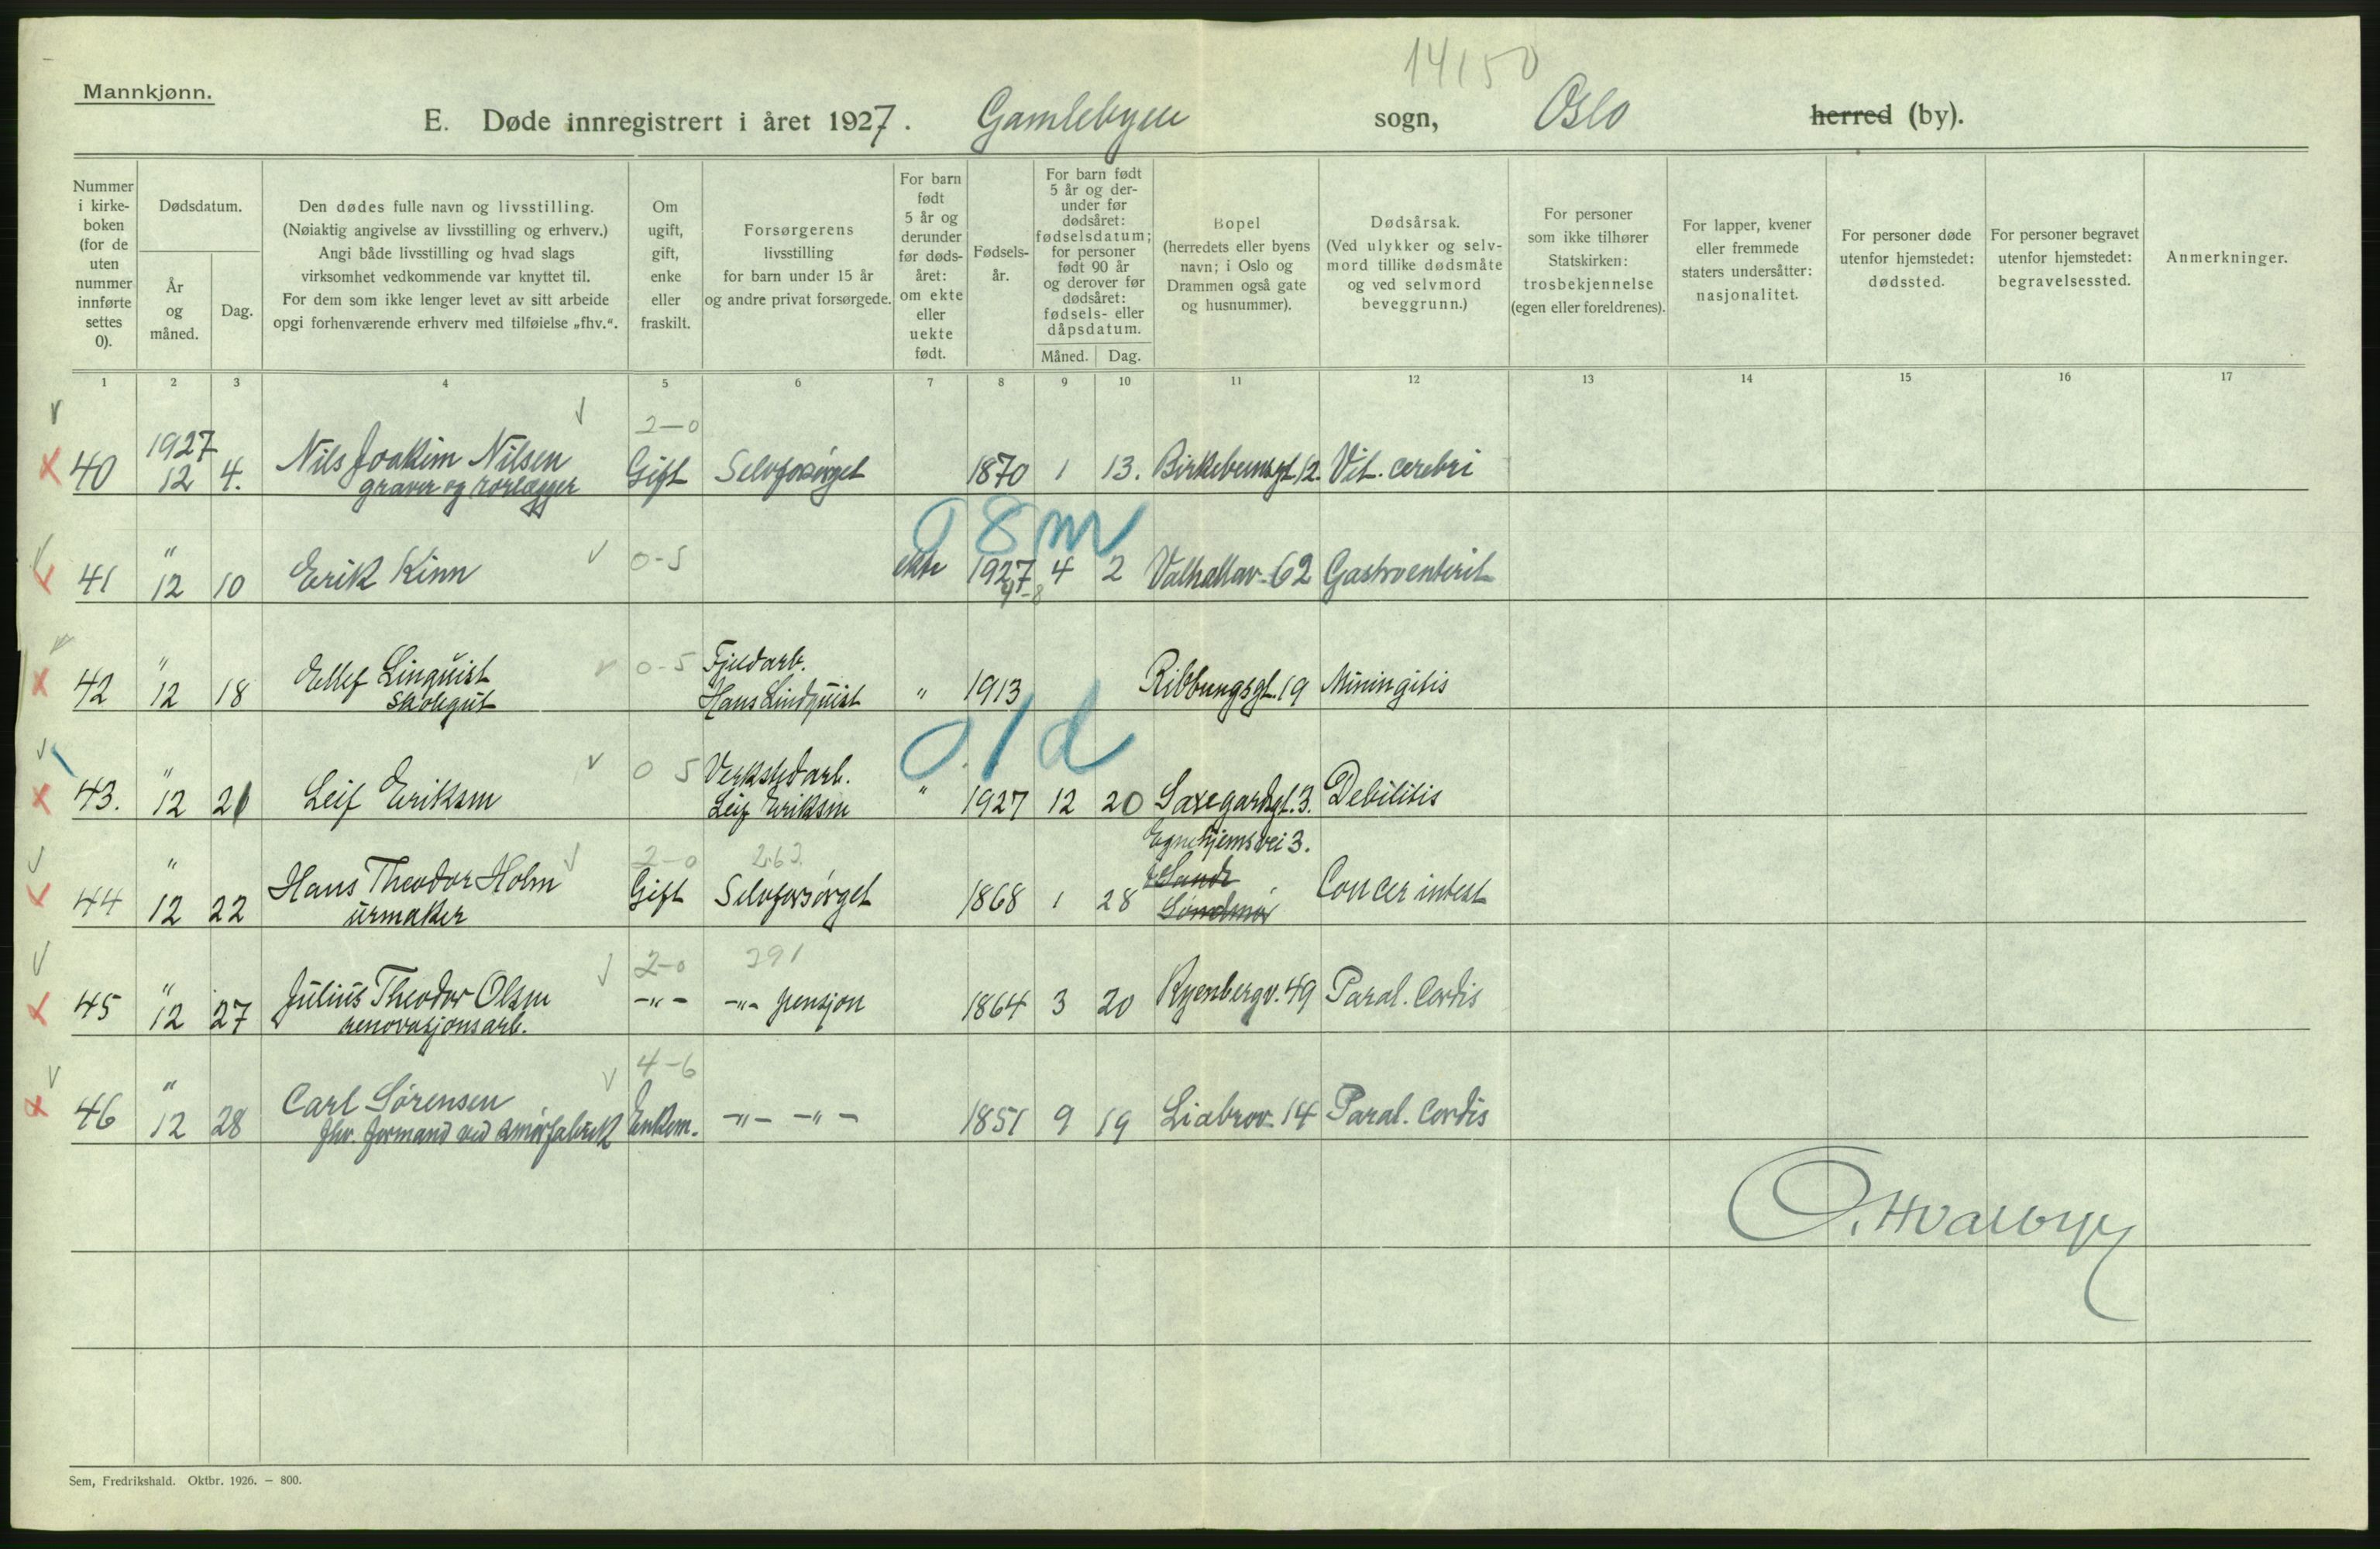 14150
Mannkjønn.
E. Døde innregistrert i året 1927. Gamlebyen sogn, Oslo herred (by).
Nummer i kirke- boken (for de uten nummer innførte settes 0).
Dødsdatum.
År og måned.
Dag.
Den dødes fulle navn og livsstilling.
(Nøiaktig angivelse av livsstilling og erhverv.)
Angi både livsstilling og hvad slags
virksomhet vedkommende var knyttet til.
For dem som ikke lenger levet av sitt arbeide
opgi forhenværende erhverv med tilføielse „fhv.“.
Om ugift, gift, enke eller fraskilt.
Forsørgerens
livsstilling
for barn under 15 år
og andre privat forsørgede.
For barn født 5 år og derunder før døds- året: om ekte eller uekte født.
Fødsels- år.
For barn født 5 år og der- under før dødsåret: fødselsdatum; for personer født 90 år og derover før dødsåret: fødsels- eller dåpsdatum.
Måned. Dag.
Bopel
(herredets eller byens
navn; i Oslo og
Drammen også gate
og husnummer).
Dødsårsak.
(Ved ulykker og selv-
mord tillike dødsmåte
og ved selvmord
beveggrunn.)
For personer
som ikke tilhører
Statskirken:
trosbekjennelse
(egen eller foreldrenes).
For lapper, kvener
eller fremmede
staters undersåtter:
nasjonalitet.
For personer døde
utenfor hjemstedet:
dødssted.
For personer begravet
utenfor hjemstedet:
begravelsessted.
Anmerkninger.
1 2 3 4 5 6 7 8 9 10 11 12 13 14 15 16 17
2-0
1927
40 12 4. Nils Joakim Nilsen Gift Selvforsørget 1870 1 13. Birkebeinsgt 12. Vit. cerebri
graver og rørlægger
8 m
"
41 12 10 Erik Kinn 0-5 ekte 1927 4 2 Valhallav. 62 Gastroenterit
"
42 12 18 Ellef Linquist 0-5 Fjeldarb. " 1913 Ribbungsgt. 19 Miningitis
skolegut Hans Lindquist
0. 1 d
"
43. 12 21 Leif Eriksen 0 5 Verkstedarb. " 1927 12 20 Saxegardsgt. 3. Debilitis
Leif Eriksen
Egnehjemsvei 3.
2-0 263
"
44 12 22 Hans Theodor Holm Gift Selvforsørget 1868 1 28 Cancer intest
urmaker
2-0 291
"
45 12 27 Julius Theodor Olsen -"- -"- pensjon 1864 3 20 Ryenbergv. 49 Paral. Cordis
renovasjonsarb.
4-6
"
46 12 28 Carl Sørensen Enkem. -"- -"- 1851 9 19 Liabrov. 14 Paral. Cordis
fhv. formand ved smørfabrik
Sem, Fredrikshald. Oktbr. 1926. – 800.